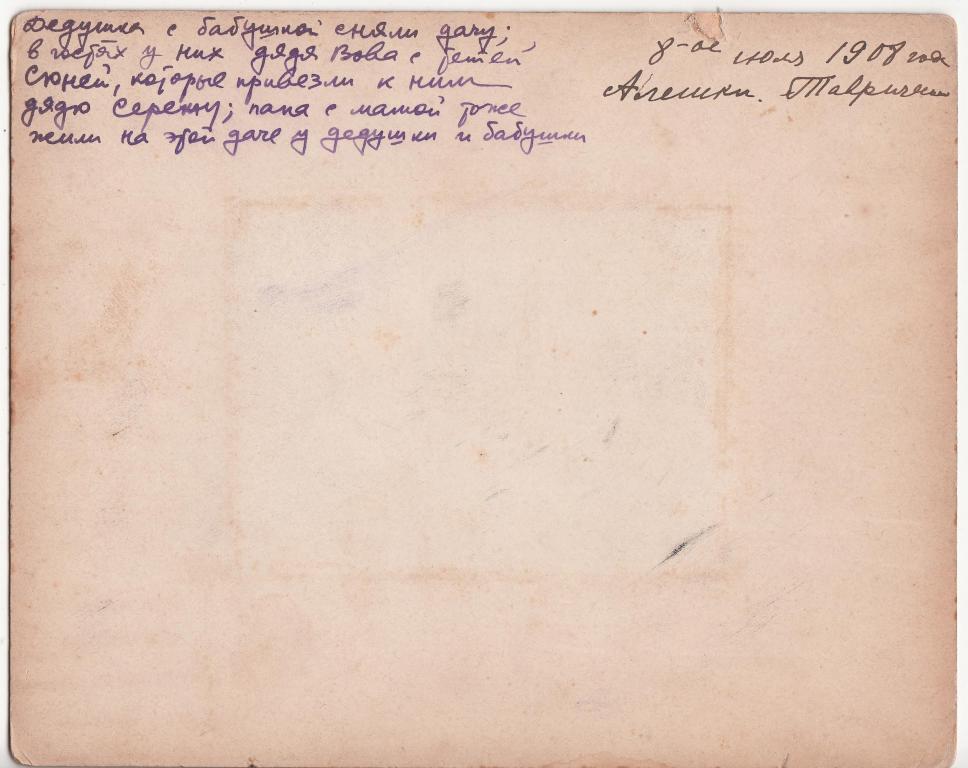 Дедушка с бабушкой сняли дачу;
в гостях у них дядя Вова с тетей
Сюней, которые привезли к ним
дядю Сережу; папа с мамой тоже
жили на этой даче у дедушки и бабушки
8-ое июля 1908 год
Алешки. Тавричес